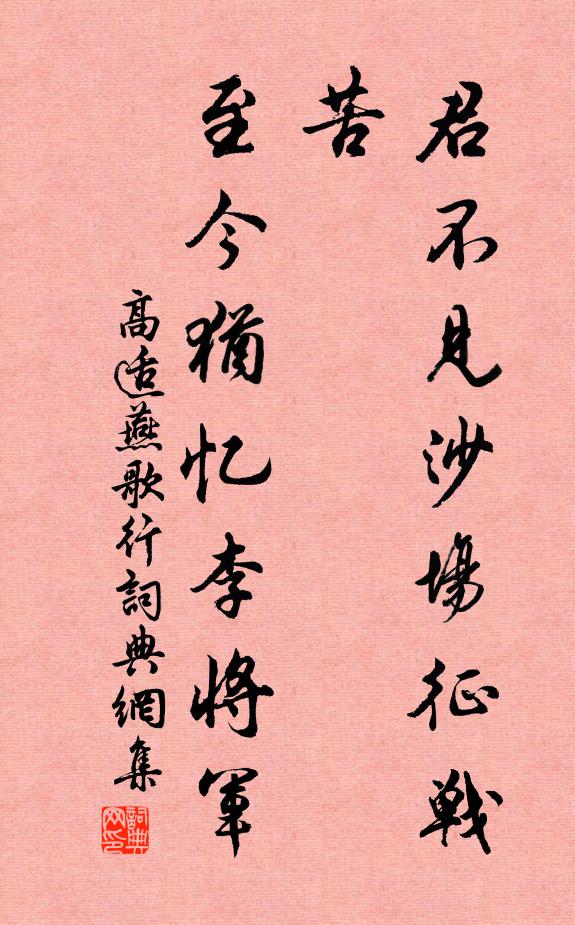 君不見沙場征戰
苦
至今猶忆李將軍
高适燕歌行詞典網集
詞典网印